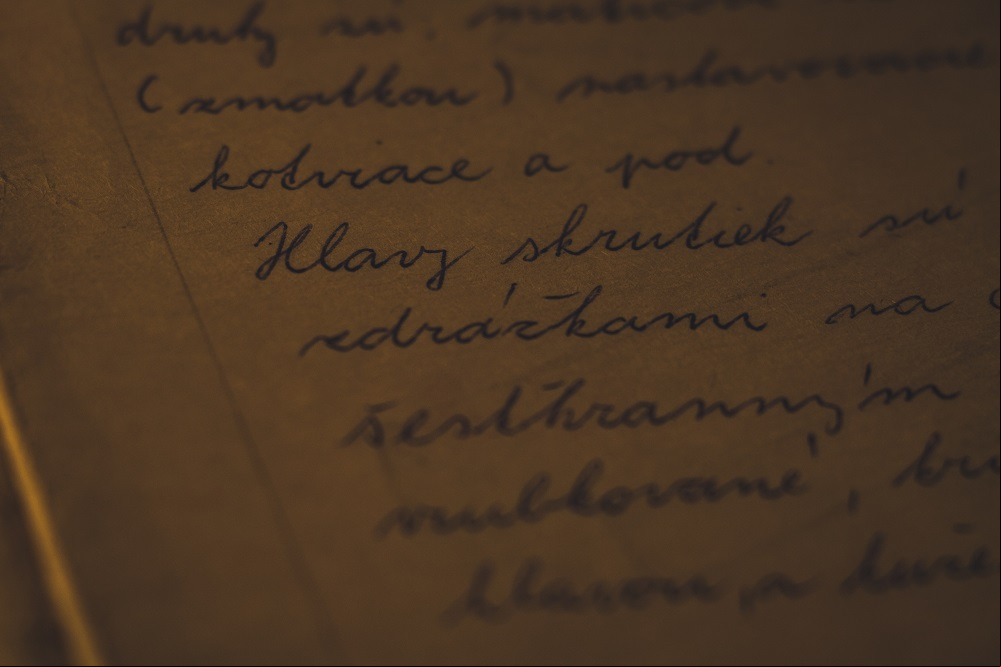 druhy sú: maticové
(zmatkou) nastavovacie
kotviace a pod.
Hlavy skrutiek sú
zdrážkami na
šesťhranným
vrubkované,
hlavou, z